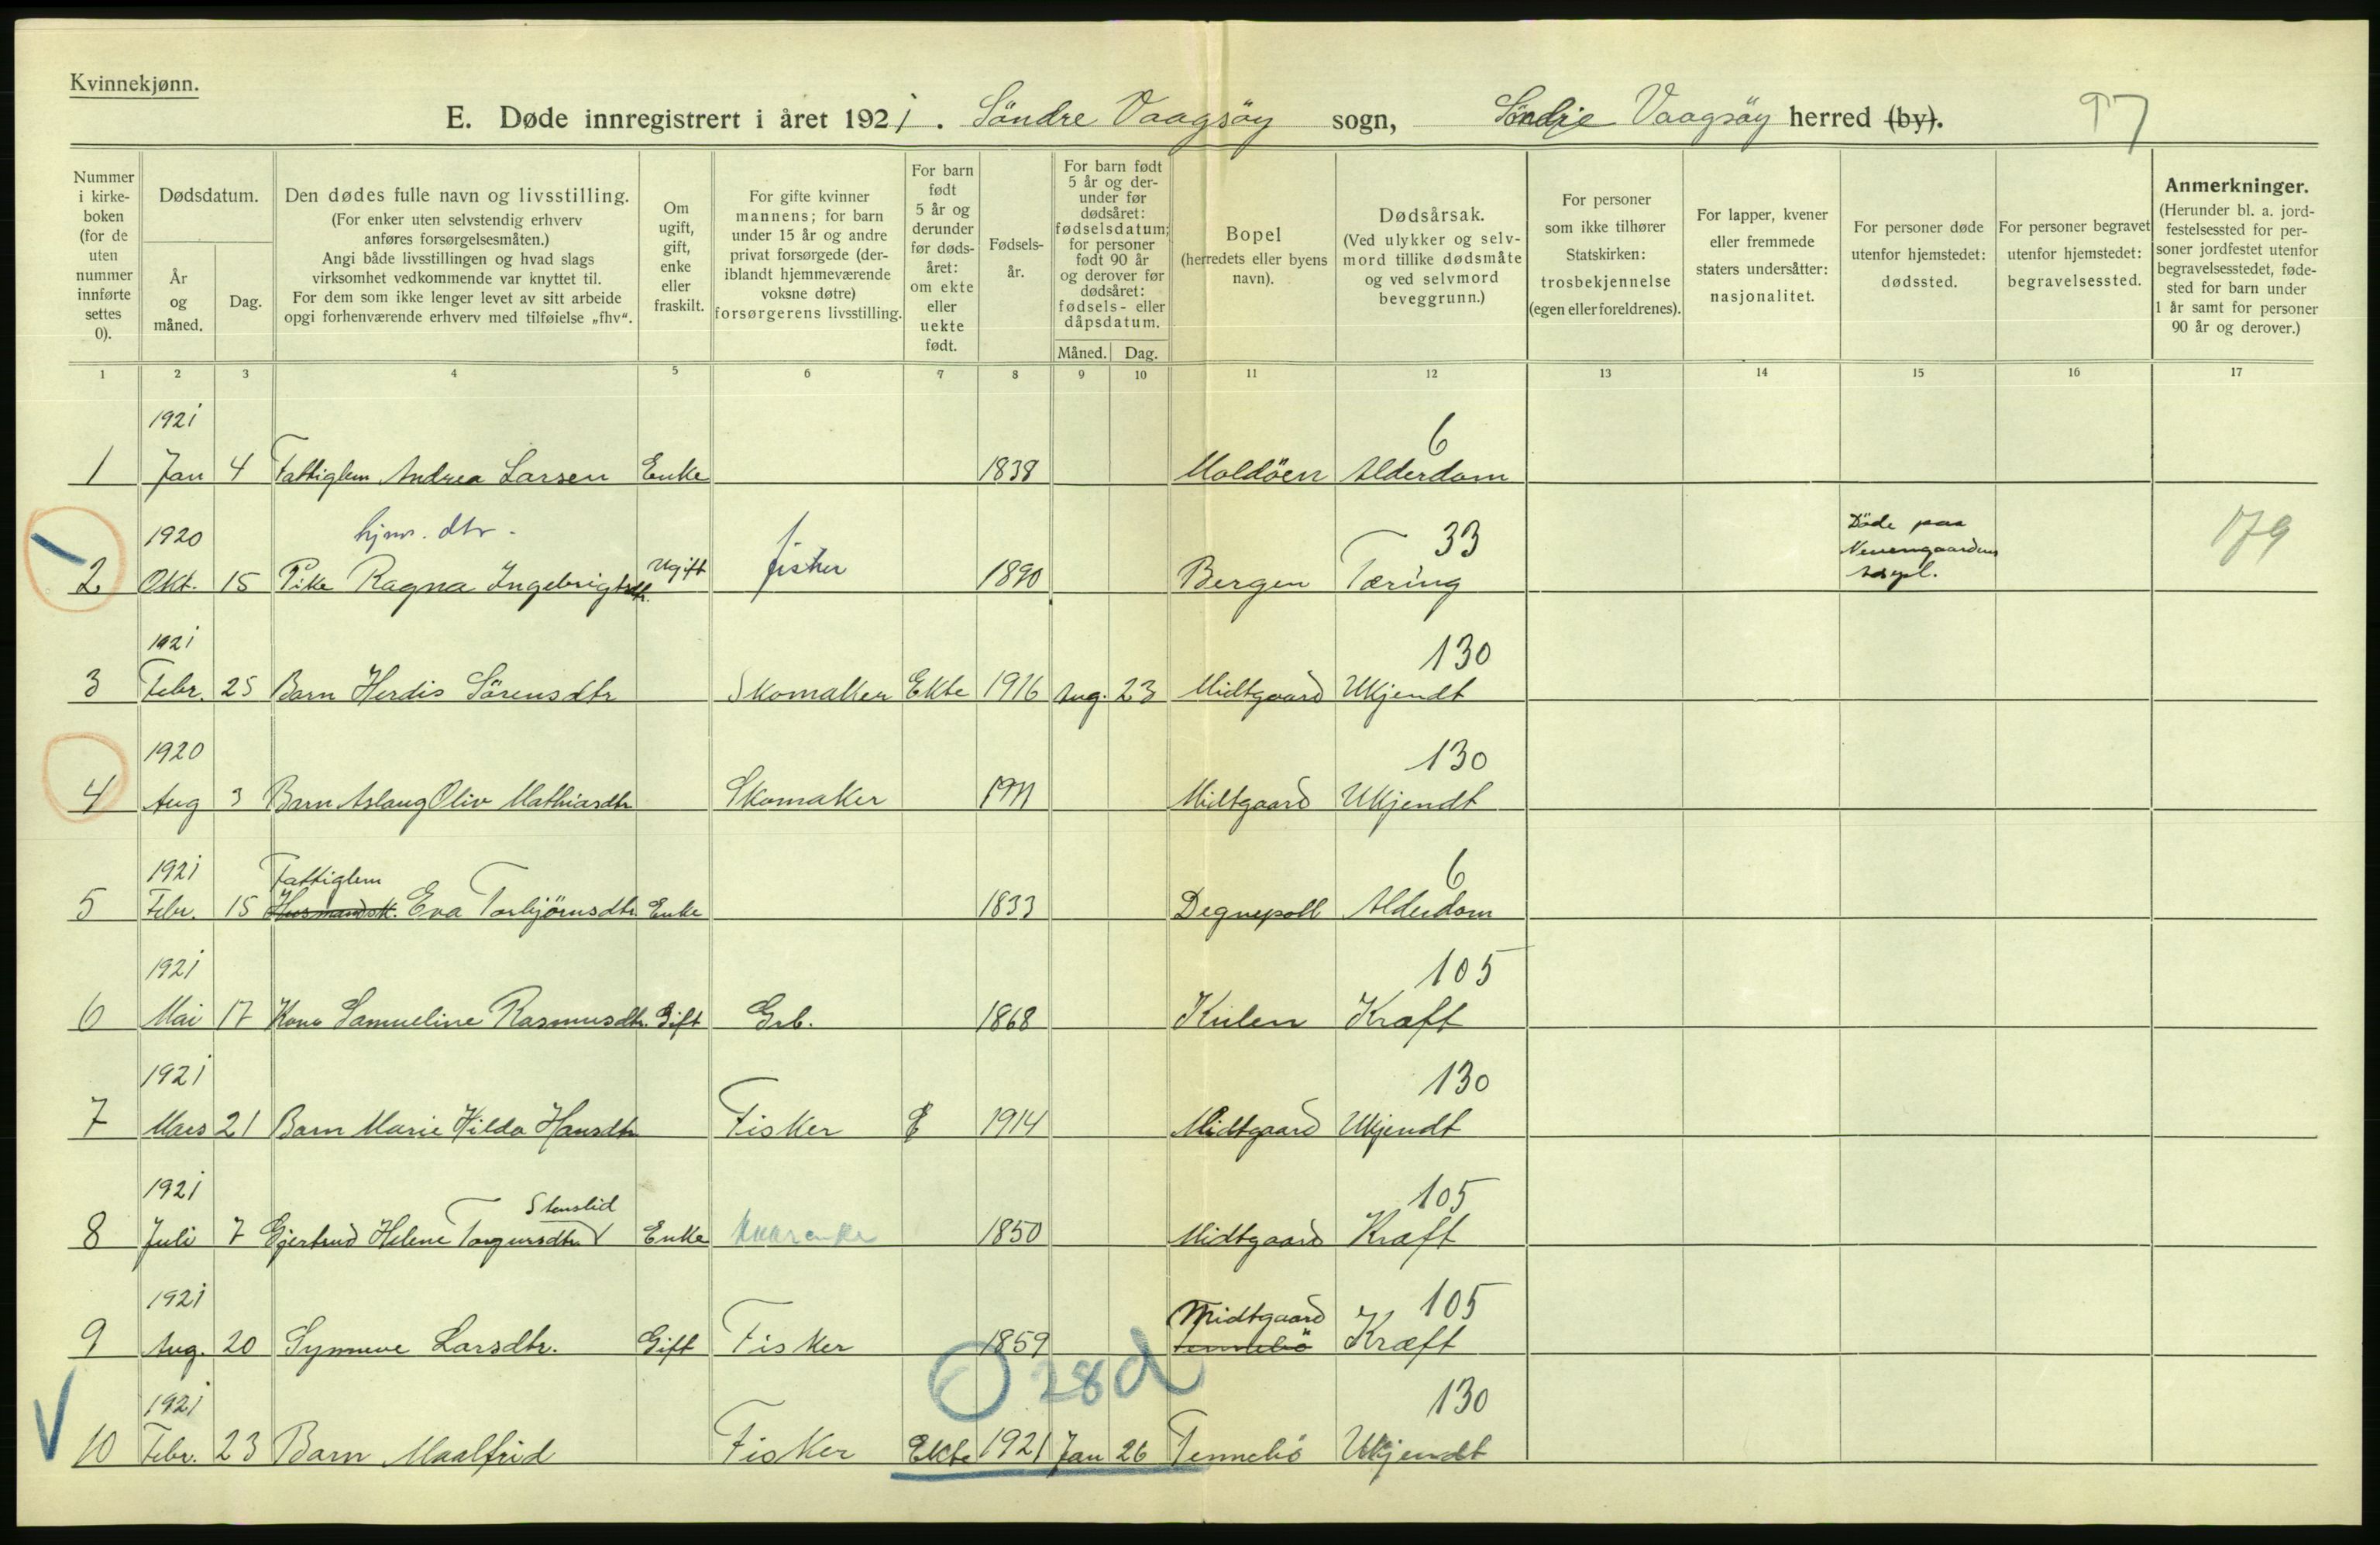 Kvinnekjønn.
E. Døde innregistrert i året 1921. Söndre Vaagsöy sogn, Söndre Vaagsöy herred (by).
Nummer i kirke-boken (for de uten nummer innførte settes 0).
Dødsdatum.
År og måned.
Dag.
Den dødes fulle navn og livsstilling.
(For enker uten selvstendig erhverv anføres forsørgelsesmåten.)
Angi både livsstillingen og hvad slags virksomhet vedkommende var knyttet til.
For dem som ikke lenger levet av sitt arbeide opgi forhenværende erhverv med tilføielse „fhv“.
Om ugift, gift, enke eller fraskilt.
For gifte kvinner mannens; for barn under 15 år og andre privat forsørgede (der-iblandt hjemmeværende voksne døtre) forsørgerens livsstilling.
For barn født 5 år og derunder før døds-året: om ekte eller uekte født.
Fødsels-år.
For barn født 5 år og der-under før dødsåret: fødselsdatum; for personer født 90 år og derover før dødsåret: fødsels- eller dåpsdatum.
Måned. Dag.
Bopel (herredets eller byens navn).
Dødsårsak.
(Ved ulykker og selv-mord tillike dødsmåte og ved selvmord beveggrunn.)
For personer som ikke tilhører Statskirken: trosbekjennelse (egen eller foreldrenes).
For lapper, kvener eller fremmede staters undersåtter: nasjonalitet.
For personer døde utenfor hjemstedet: dødssted.
For personer begravet utenfor hjemstedet: begravelsessted.
Anmerkninger.
(Herunder bl. a. jord-festelsessted for per-soner jordfestet utenfor begravelsesstedet, føde-sted for barn under 1 år samt for personer 90 år og derover.)
1 2 3 4 5 6 7 8 9 10 11 12 13 14 15 16 17
1921 6
1 Jan 4 Fattiglem Andrea Larsen Enke 1838 Moldöen Alderdom
1920 hjmv. dtr. 33 Döde paa
Neuengaardens
2 Okt. 15 Pike Ragna Ingebrigtsdtr. Ugift fisker 1890 Bergen Tæring 179
1921 130
3 Febr. 25 Barn Herdis Sörensdtr Skomaker Ekte 1916 Aug. 23 Midtgaard Ukjendt
1920 130
4 Aug 3 Barn Aslaug Oliv Mathiasdtr Skomaker Midtgaard Ukjendt
1921 Fattiglem 6
5 Febr. 15 Husmandsk. Eva Torbjörnsdtr Enke 1833 Degnepoll Alderdom
1921 105
6 Mai 17 Kone Samueline Rasmusdtr. Gift Grb. 1868 Kulen Kræft
1921 130
7 Mars 21 Barn Marie Hilda Hansdtr Fisker E 1914 Midtgaard Ukjendt
1921 Stenslid 105
8 Juli 7 Gjertrud Helene Enke 1850 Midtgaard Kræft
1921 Midtgaard 105
9 Aug. 20 Synneve Larsdtr. Gift Fisker 1859 Tennebö Kræft
28d
1921 130
10 Febr. 23 Barn Maalfrid Fisker Ekte 1921 Jan 26 Tennebö Ukjendt